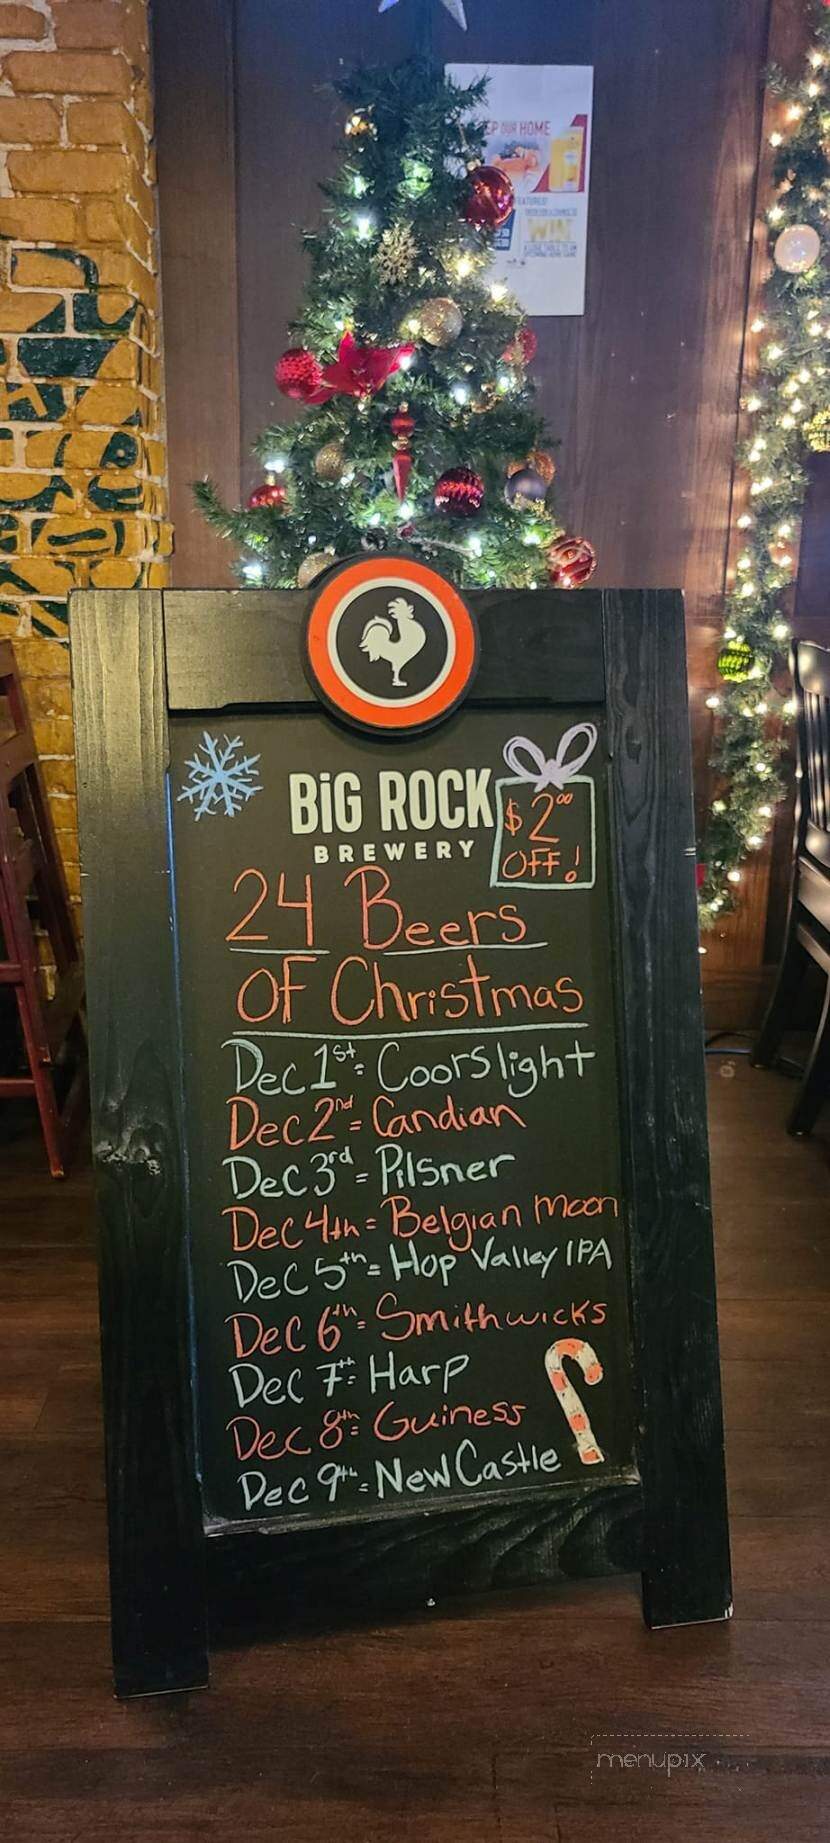 OUR HOME
WIN
BiG ROCK
BREWERY
$2.00
OFF!
24 Beers
OF Christmas
Dec 1st = Coors light
Dec 2nd = Candian
Dec 3rd = Pilsner
Dec 4th = Belgian moon
Dec 5th = Hop Valley IPA
Dec 6th = Smithwicks
Dec 7th = Harp
Dec 8th = Guiness
Dec 9th = New Castle
menupix